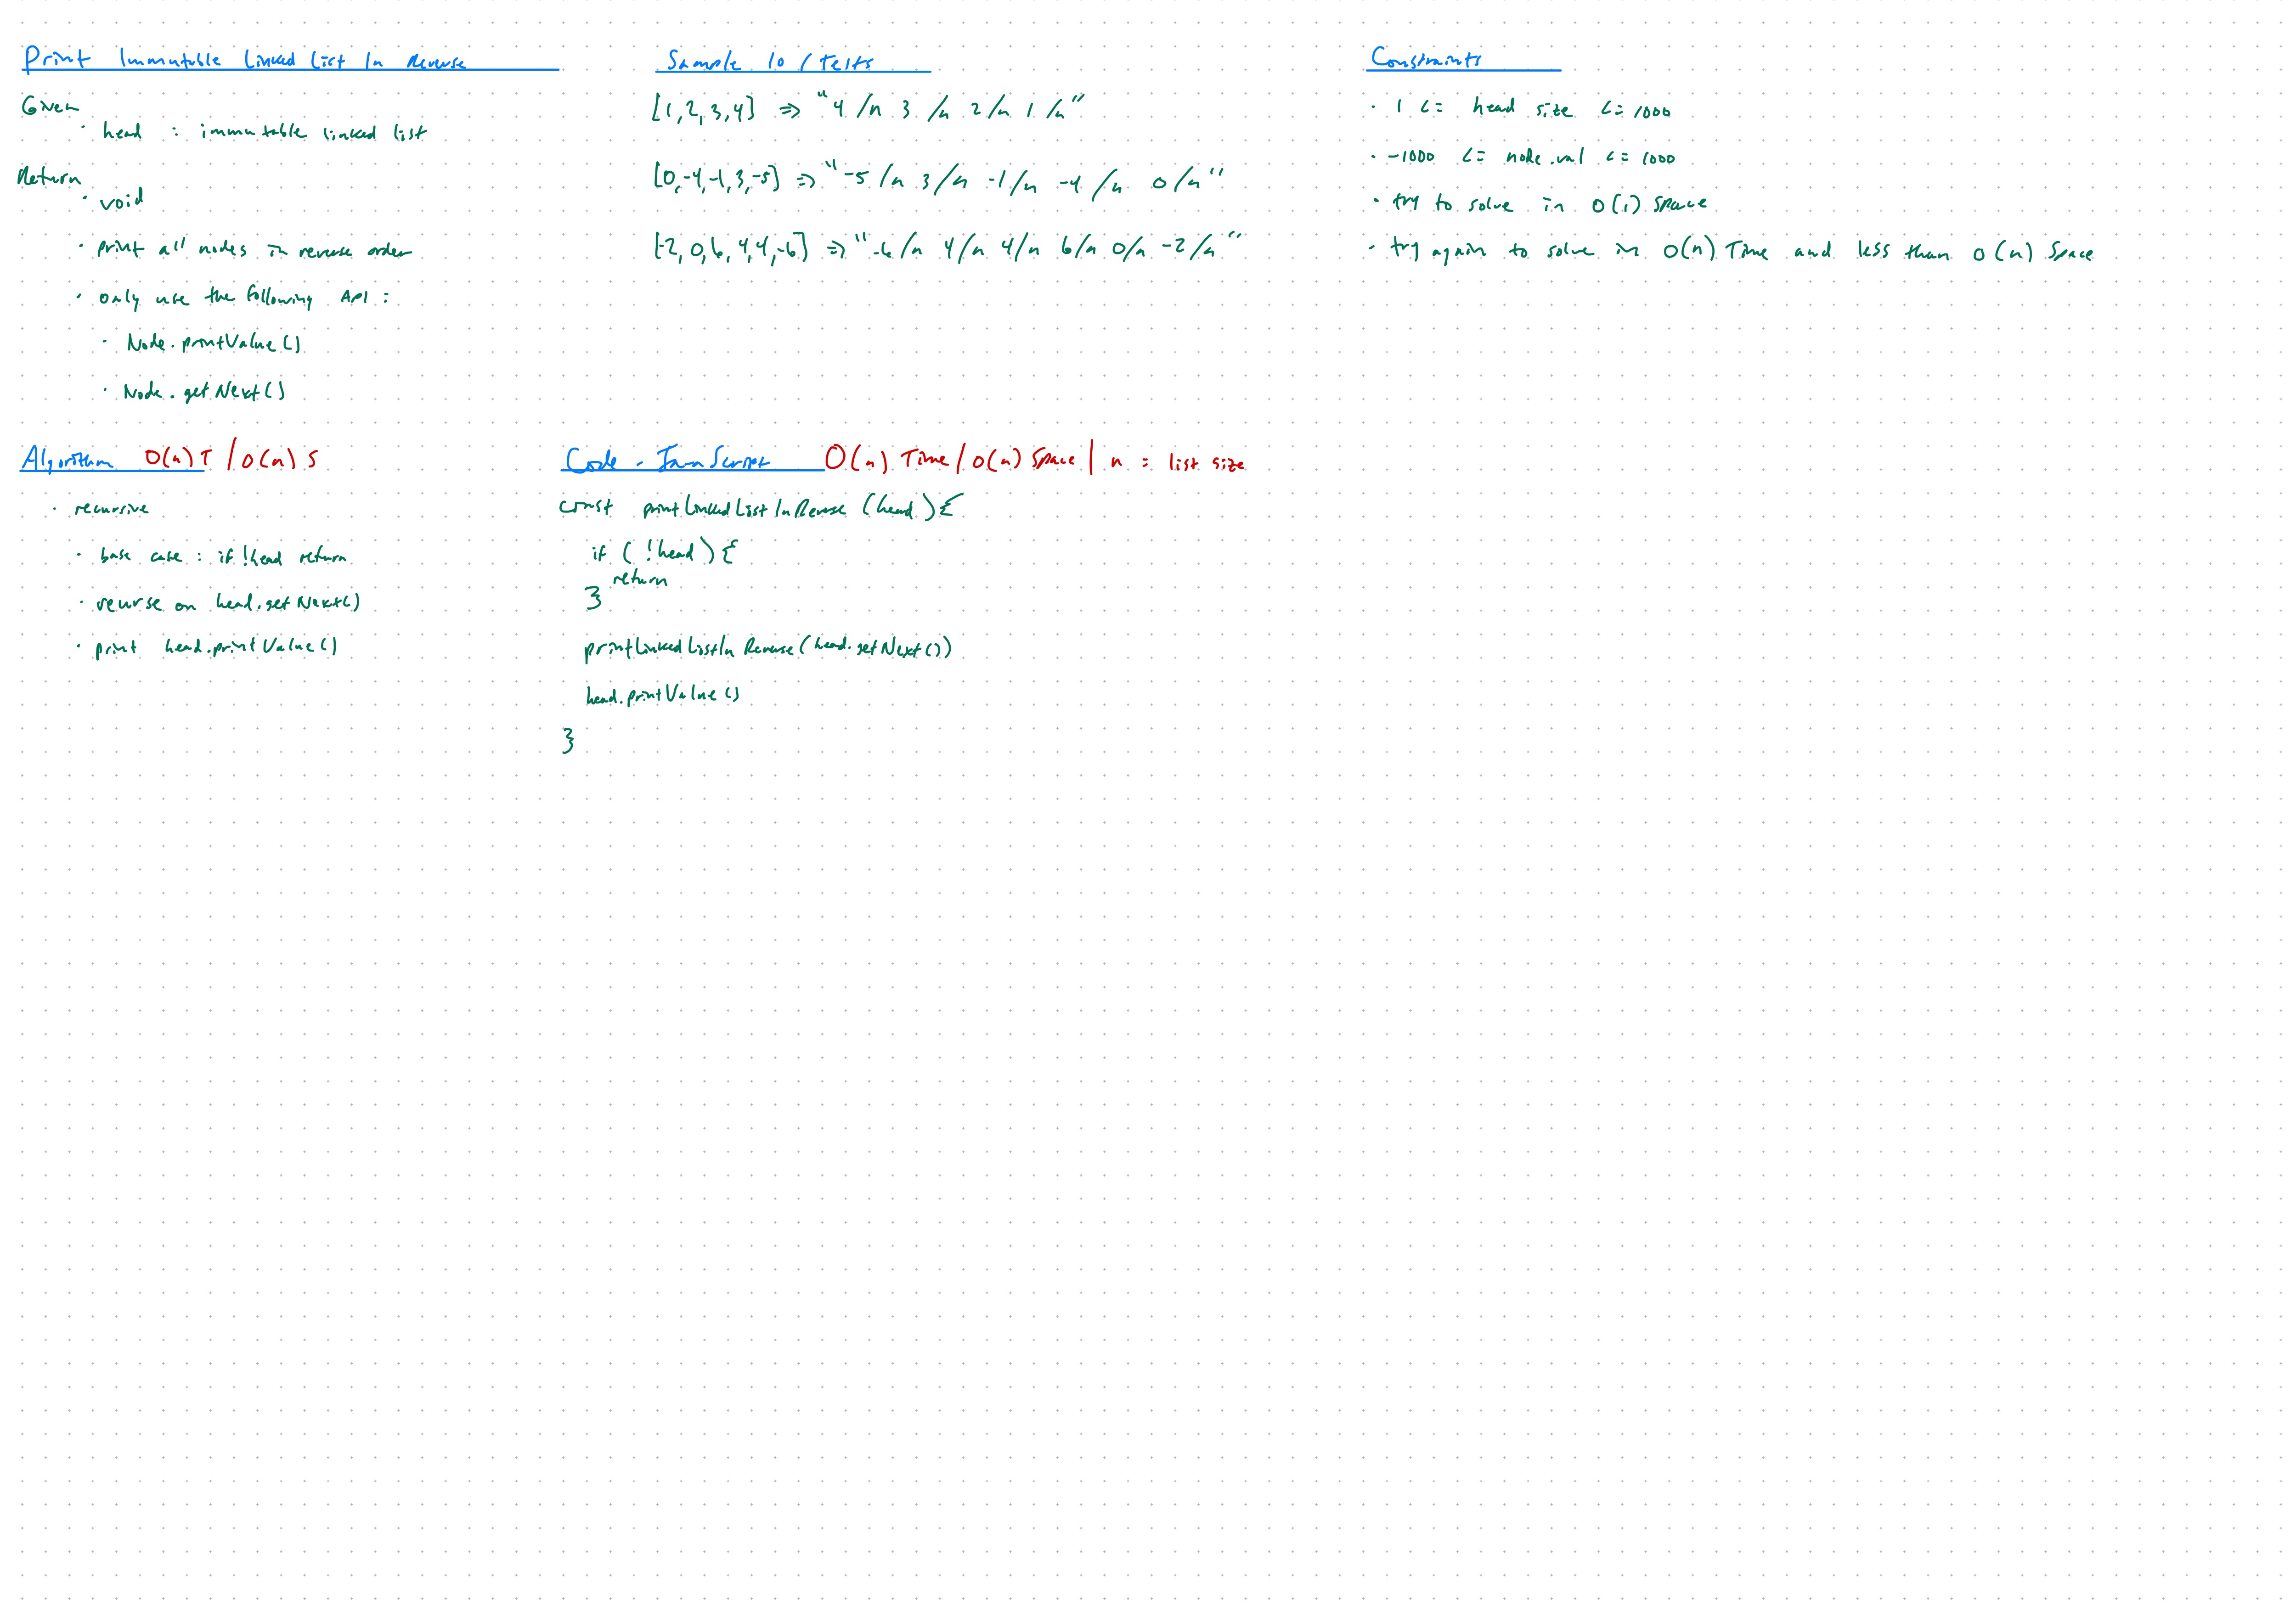 Print Immutable Linked List In Reverse
Given
· head : immutable linked list
Return
· void
· print all nodes in reverse order
· only use the following API :
· Node.printValue()
· Node.getNext()
Sample IO / Tests
[1,2,3,4] => "4 /n 3 /n 2 /n 1 /n"
[0,-4,-1,3,-5] => "-5 /n 3 /n -1 /n -4 /n 0 /n"
[-2,0,6,4,4,-6] => "-6 /n 4 /n 4 /n 6 /n 0 /n -2 /n"
Constraints
· 1 <= head size <= 1000
· -1000 <= node.val <= 1000
· try to solve in O(1) space
· try again to solve in O(n) Time and less than O(n) Space
Algorithm O(n) T / O(n) S
· recursive
· base case : if !head return
· recurse on head.getNext()
· print head.printValue()
Code - JavaScript O(n) Time / O(n) Space | n = list size
const printLinkedListInReverse (head) {
if ( !head ) {
return
}
printLinkedListInReverse(head.getNext())
head.printValue()
}